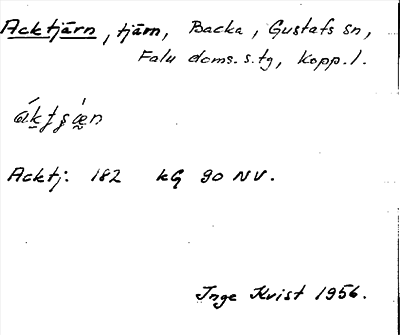 Acktjärn, tjärn, Backa, Gustafs sn,
Falu doms.s.tg, Kopp.l.
Acktj: 182 kG 90 NV.
Inge Kvist 1956.